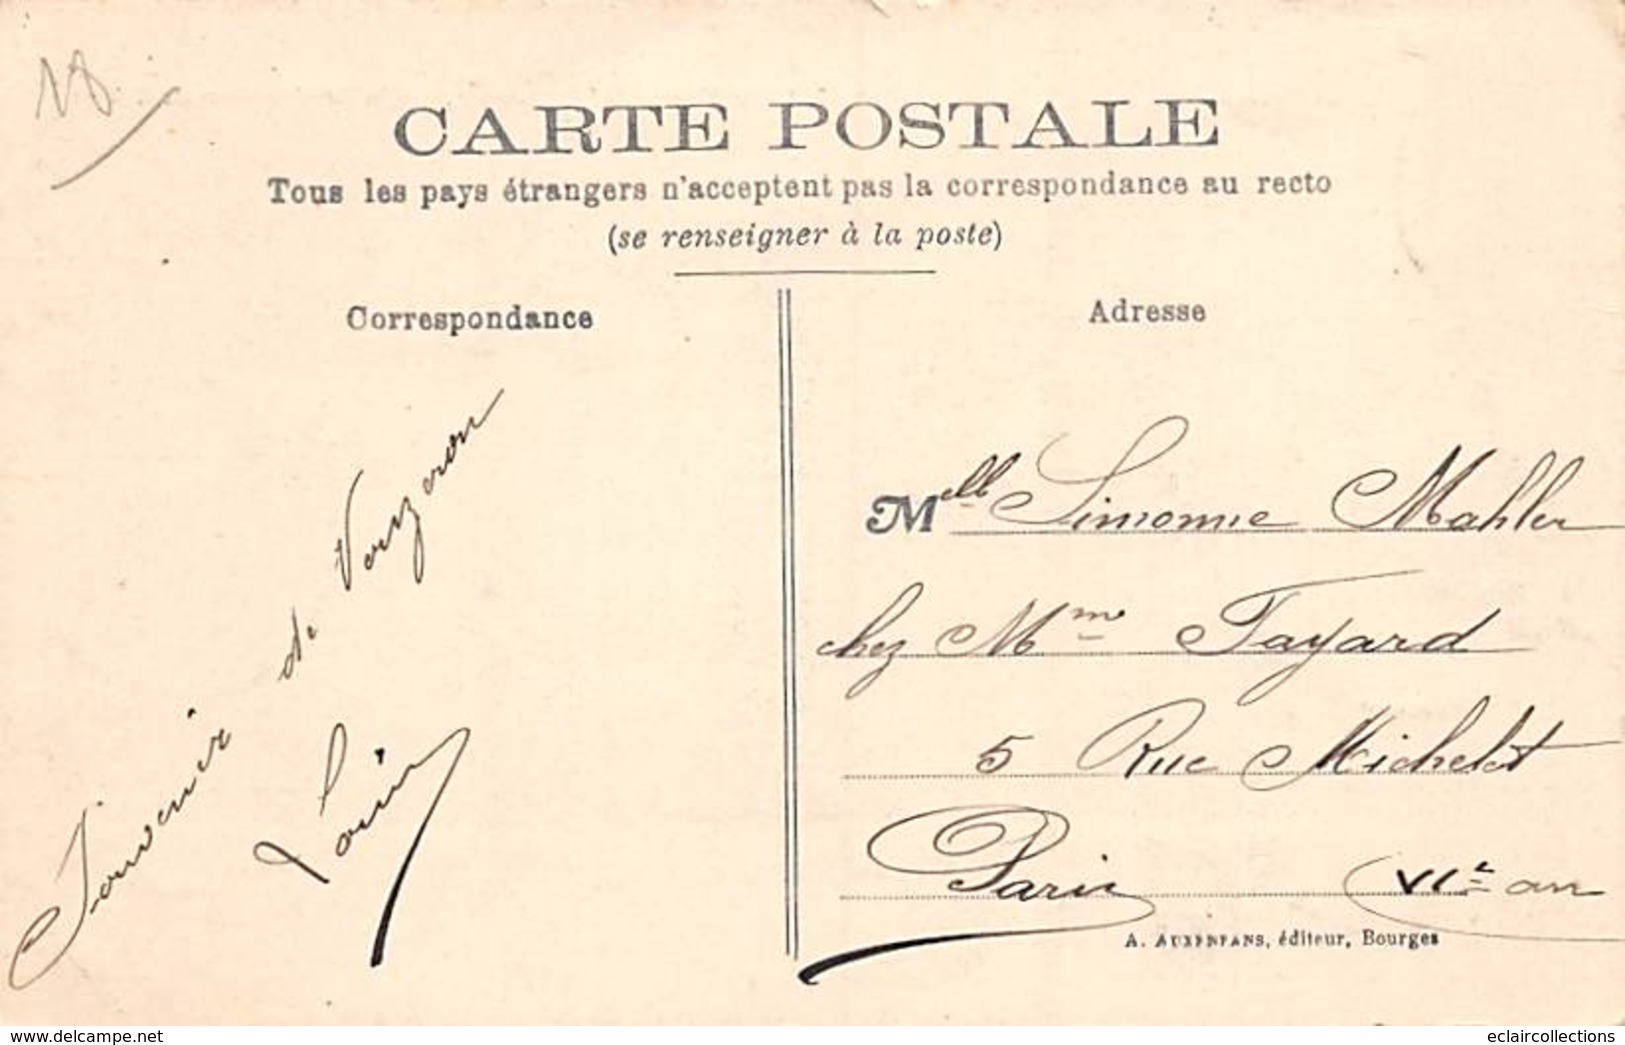 18
CARTE POSTALE
Tous les pays étrangers n'acceptent pas la correspondance au recto
(se renseigner à la poste)
Correspondance
Adresse
Souvenir de Vouzeron
Melle Simonne Mahler
chez Mme Fayard
5 Rue Michelet
Paris VIe arr
A. AUXENFANS, éditeur, Bourges
www.delcampe.net
eclaircollections